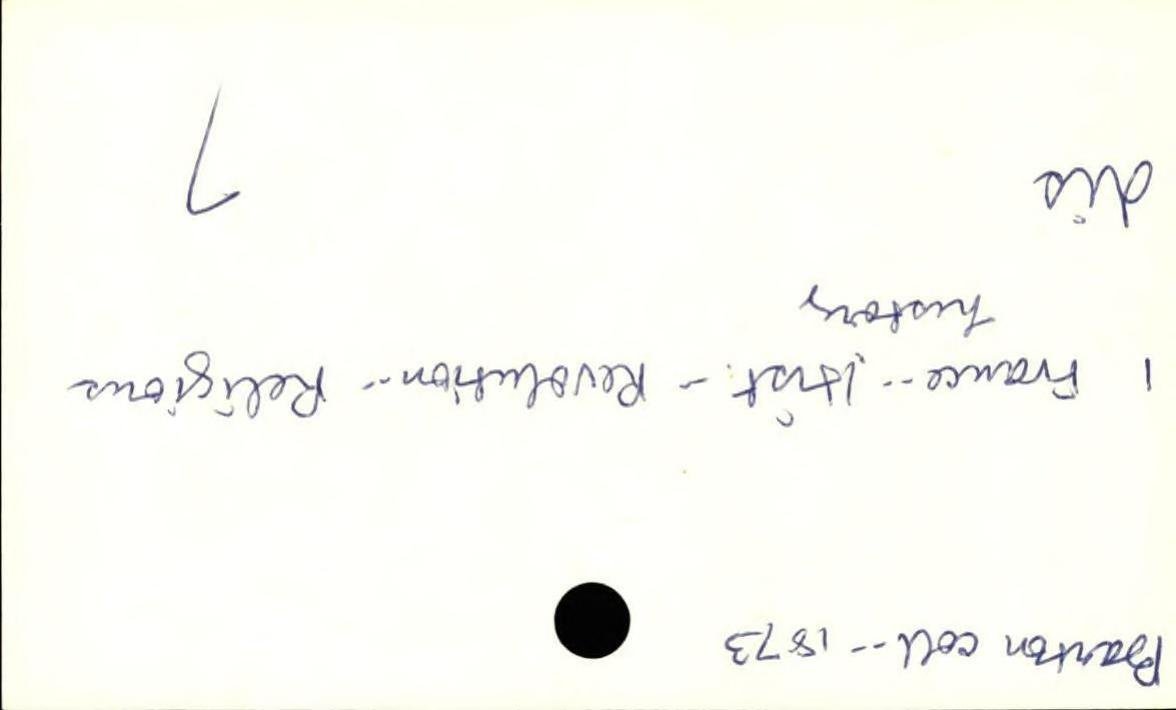 Barton coll -- 1873
1 France -- Hist. - Revolution -- Religious
history
dis